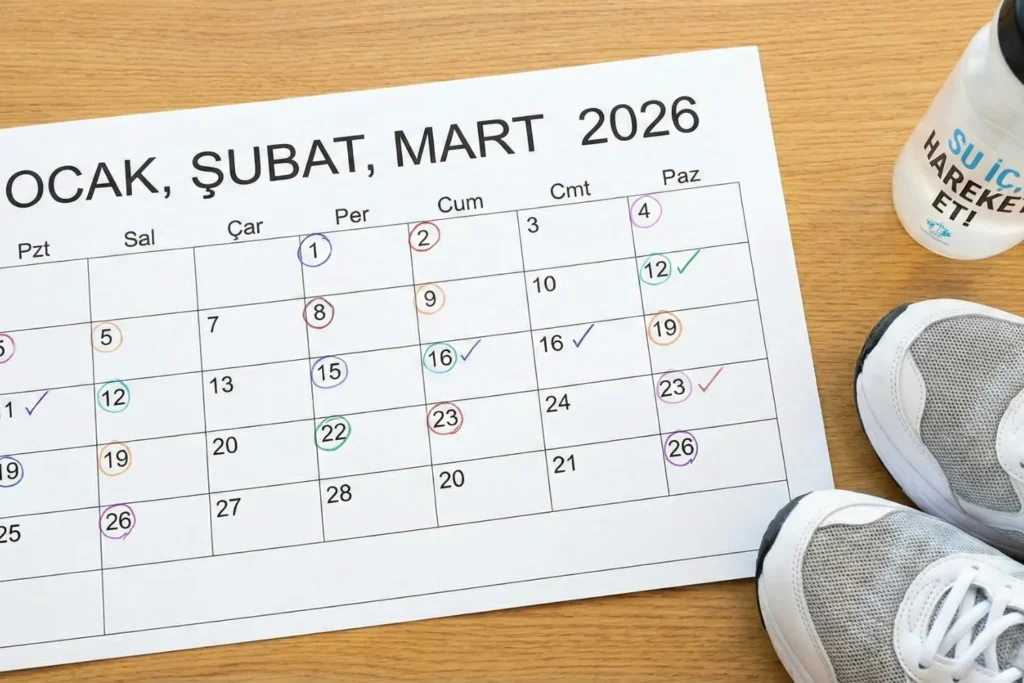 OCAK, ŞUBAT, MART 2026
Pzt Sal Çar Per Cum Cmt Paz
1 2 3 4
5 5 7 8 9 10 12
1 12 13 15 16 16 19
19 19 20 22 23 24 23
25 26 27 28 20 21 26
SU İÇ,
HAREKET
ET!